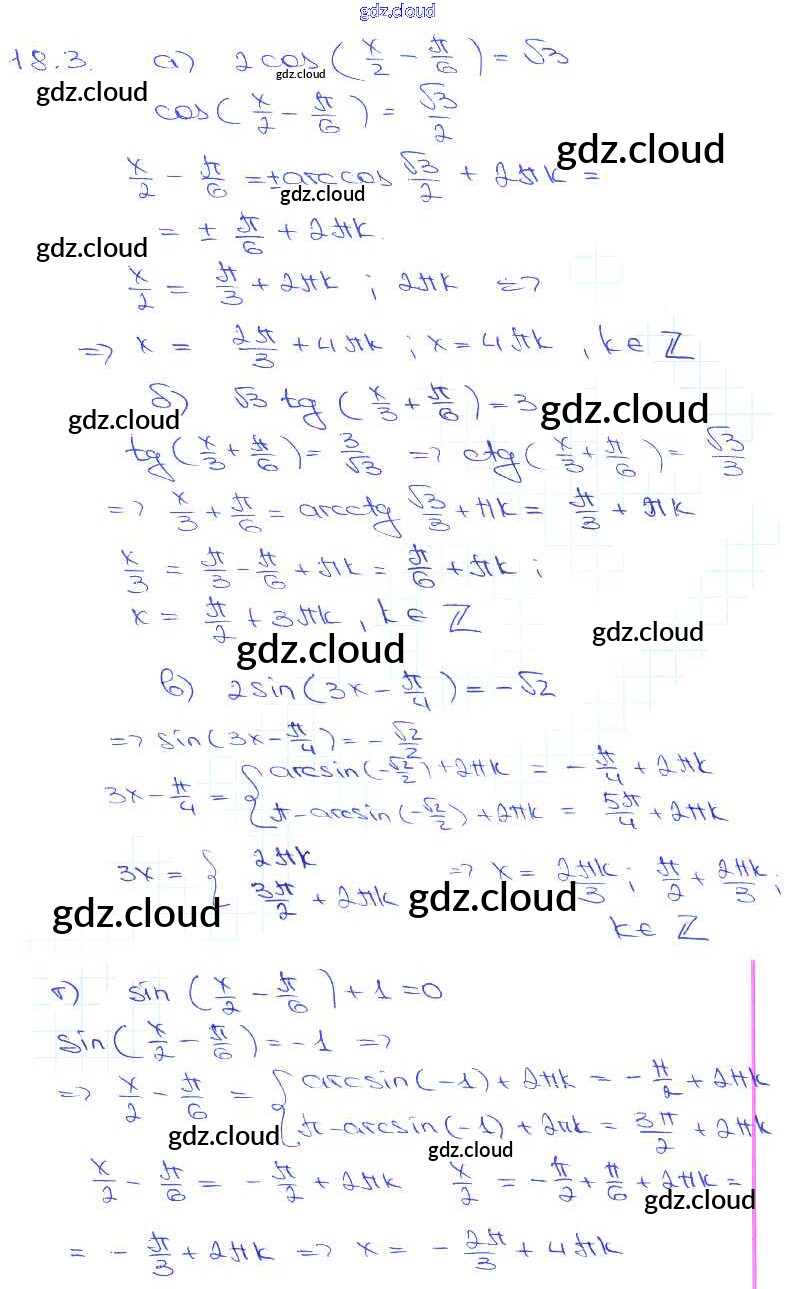 gdz.cloud
18.3. а) 2cos(x/2 - π/6) = √3
gdz.cloud
gdz.cloud
cos(x/2 - π/6) = √3/2
gdz.cloud
x/2 - π/6 = ± arccos √3/2 + 2πk =
gdz.cloud
= ± π/6 + 2πk.
gdz.cloud
x/2 = π/3 + 2πk ; 2πk =>
=> x = 2π/3 + 4πk ; x = 4πk , k ∈ ℤ
б) √3 tg (x/3 + π/6) = 3
gdz.cloud
gdz.cloud
tg(x/3 + π/6) = 3/√3 => ctg(x/3 + π/6) = √3/3
=> x/3 + π/6 = arcctg √3/3 + πk = π/3 + πk
x/3 = π/3 - π/6 + πk = π/6 + πk ;
x = π/2 + 3πk , k ∈ ℤ
gdz.cloud
gdz.cloud
в) 2sin(3x - π/4) = -√2
=> sin(3x - π/4) = - √2/2
3x - π/4 = { arcsin(-√2/2) + 2πk = - π/4 + 2πk
π - arcsin(-√2/2) + 2πk = 5π/4 + 2πk
3x = { 2πk => x = 2πk/3 ; π/2 + 2πk/3 ;
3π/2 + 2πk
gdz.cloud
gdz.cloud
k ∈ ℤ
г) sin (x/2 - π/6) + 1 = 0
sin(x/2 - π/6) = -1 =>
=> x/2 - π/6 = { arcsin(-1) + 2πk = - π/2 + 2πk
π - arcsin(-1) + 2πk = 3π/2 + 2πk
gdz.cloud
gdz.cloud
x/2 - π/6 = - π/2 + 2πk x/2 = - π/2 + π/6 + 2πk =
gdz.cloud
= - π/3 + 2πk => x = - 2π/3 + 4πk